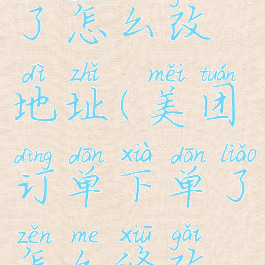 了怎么改
dì zhǐ měi tuán
地址(美团
dìng dān xià dān liǎo
订单下单了
zěn me xiū gǎi
怎么修改